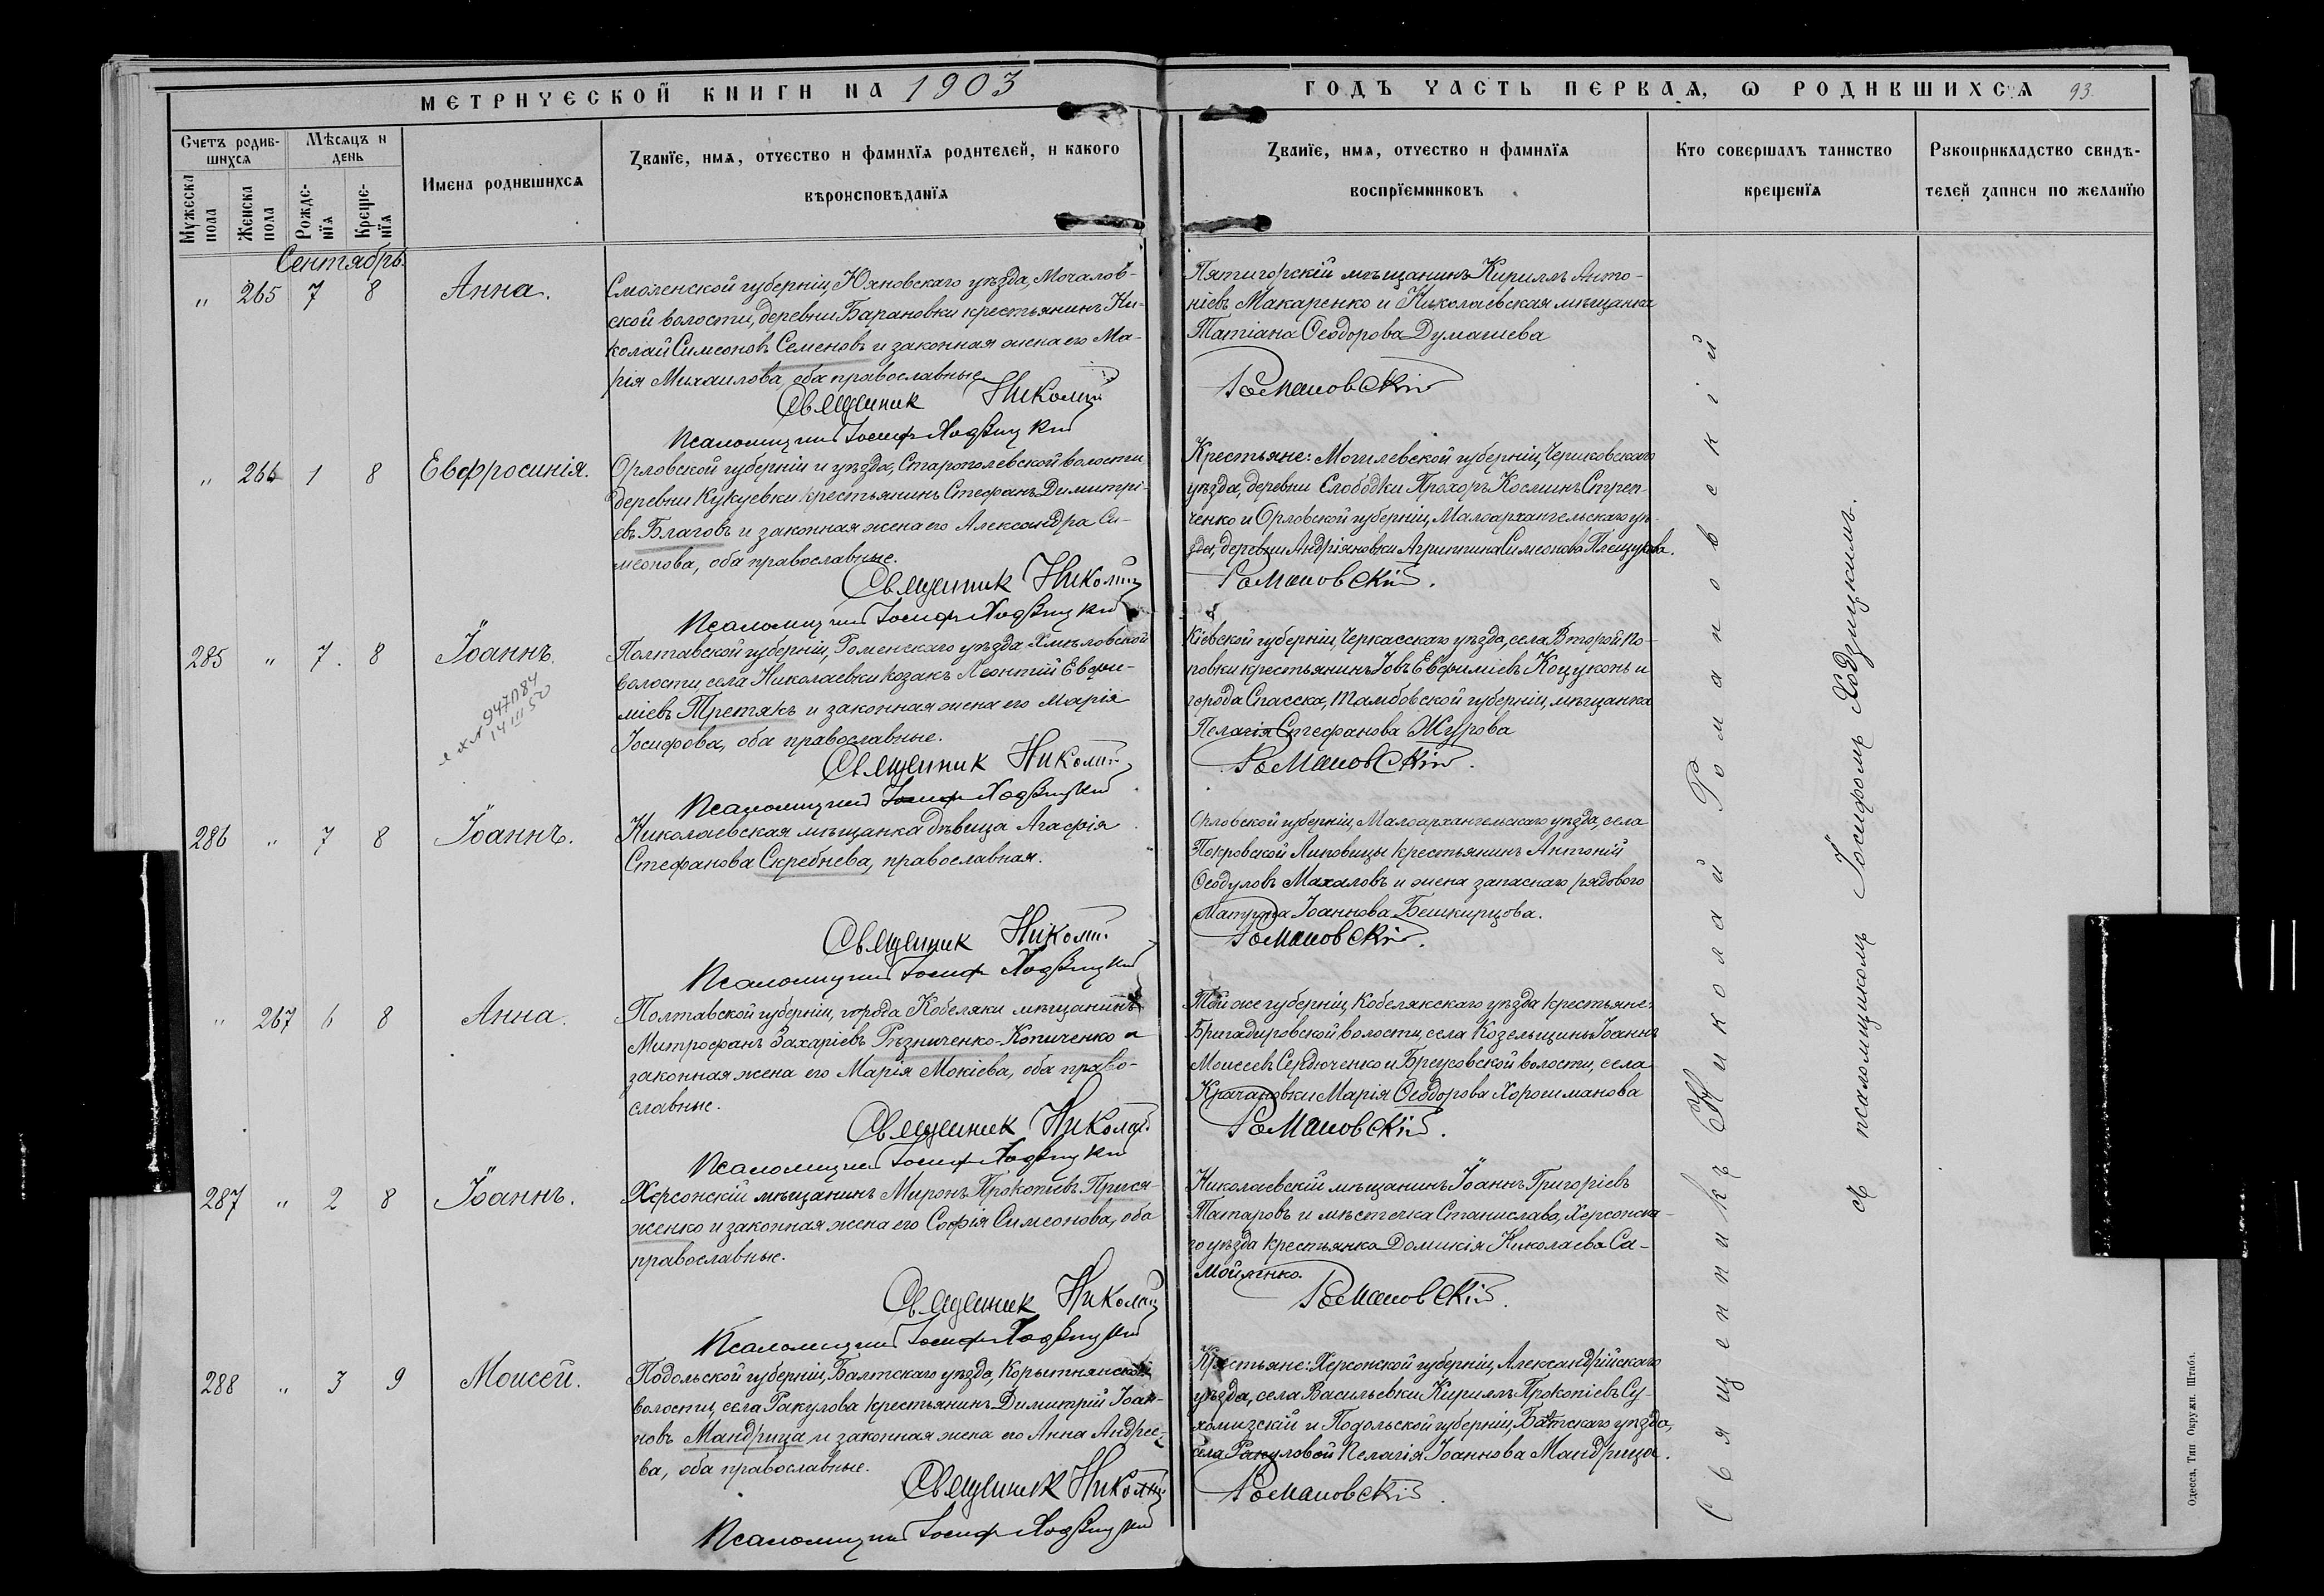 МЕТРИЧЕСКОЙ КНИГИ НА 1903
ГОДЪ ЧАСТЬ ПЕРВАЯ, Ѡ РОДИВШИХСЯ 93.
Счетъ родив-
шихся
Мѣсяцъ и
день
Мужеска
пола
Женска
пола
Рожде-
нїя
Креще-
нїя
Имена родившихся
Званїе, имя, отчество и фамилїя родителей, и какого
вѣроисповѣданїя
Званїе, имя, отчество и фамилїя
воспрїемниковъ
Кто совершалъ таинство
крещенїя
Рꙋкоприкладство свидѣ-
телей записи по желанїю
Сентябрь.
" 265 7 8 Анна.
Смоленской губерніи, Юхновскаго уѣзда, Мочалов-
ской волости, деревни Барановки крестьянинъ Ни-
колай Симеоновъ Семеновъ и законная жена его Ма-
рія Михаилова, оба православные
Священник Николай
Псаломщикъ Іосиф Ходзицкий
Пятигорскій мѣщанинъ Кириллъ Анто-
ніевъ Макаренко и Николаевская мѣщанка
Татіана Ѳеодорова Думашева
Романовскій
" 266 1 8 Евфросинія.
Орловской губерніи и уѣзда, Старополевской волости
деревни Кукуевки крестьянинъ Стефанъ Димитрі-
евъ Благовъ и законная жена его Александра Си-
меонова, оба православные.
Священник Николай
Псаломщикъ Іосиф Ходзицкий
Крестьяне: Могилевской губерніи, Чериковскаго
уѣзда, деревни Слободки Прохоръ Косминъ Стреп-
ченко и Орловской губерніи, Малоархангельскаго уѣ-
зда, деревни Андріяновки Агриппина Симеонова Плещукова.
Романовскій.
285 " 7. 8 Іоаннъ.
14 III 50
Полтавской губерніи, Роменскаго уѣзда Хмѣловской
волости, села Николаевки козакъ Леонтій Евфи-
міевъ Третякъ и законная жена его Марія
Іосифова, оба православные.
Священник Николай
Псаломщикъ Іосиф Ходзицкий
Кіевской губерніи, Черкасскаго уѣзда, села Второй По-
повки крестьянинъ Іовъ Евфиміевъ Коцуконь и
города Спасска, Тамбовской губерніи, мѣщанка
Пелагія Стефанова Журова
Романовскій.
286 " 7 8 Іоаннъ.
Николаевская мѣщанка дѣвица Агафія
Стефанова Скребнева, православная.
Священник Николай
Псаломщикъ Іосиф Ходзицкий
Орловской губерніи, Малоархангельскаго уѣзда, села
Покровской Липовицы крестьянинъ Антоній
Ѳеодуловъ Махаловъ и жена запаснаго рядового
Матрона Іоаннова Бешкирцова.
Романовскій.
" 267 6 8 Анна.
Полтавской губерніи, города Кобеляки мѣщанинъ
Митрофанъ Захаріевъ Рѣзниченко-Копиченко и
законная жена его Марія Мокіева, оба право-
славные.
Священник Николай
Псаломщикъ Іосиф Ходзицкий
Той же губерніи, Кобелякскаго уѣзда крестьяне:
Бригадировской волости, села Козельщины Іоаннъ
Моисеевъ Сердюченко и Бреусовской волости, села
Крачановки Марія Ѳеодорова Хорошманова
Романовскій.
287 " 2 8 Іоаннъ.
Херсонскій мѣщанинъ Миронъ Прокопіевъ Прися-
женко и законная жена его Софія Симеонова, оба
православные.
Священник Николай
Псаломщикъ Іосиф Ходзицкий
Николаевскій мѣщанинъ Іоаннъ Григоріевъ
Татаровъ и мѣстечка Станислава, Херсонска-
го уѣзда крестьянка Домникія Николаева Са-
мойленко.
Романовскій.
288 " 3 9 Моисей.
Подольской губерніи, Балтскаго уѣзда, Корытнянской
волости, села Ракулова крестьянинъ Димитрій Іоан-
новъ Мандрица и законная жена его Анна Андрее-
ва, оба православные.
Священник Николай
Псаломщикъ Іосиф Ходзицкий
Крестьяне: Херсонской губерніи, Александрійскаго
уѣзда, села Васильевки Кириллъ Прокопіевъ Су-
хомизскій и Подольской губерніи, Балтскаго уѣзда,
села Ракуловой Пелагія Іоаннова Мандрица.
Романовскій.
Священникъ Николай Романовскій
съ псаломщикомъ Іосифомъ Ходзицкимъ.
Одесса, Тип Окружн. Штаба.